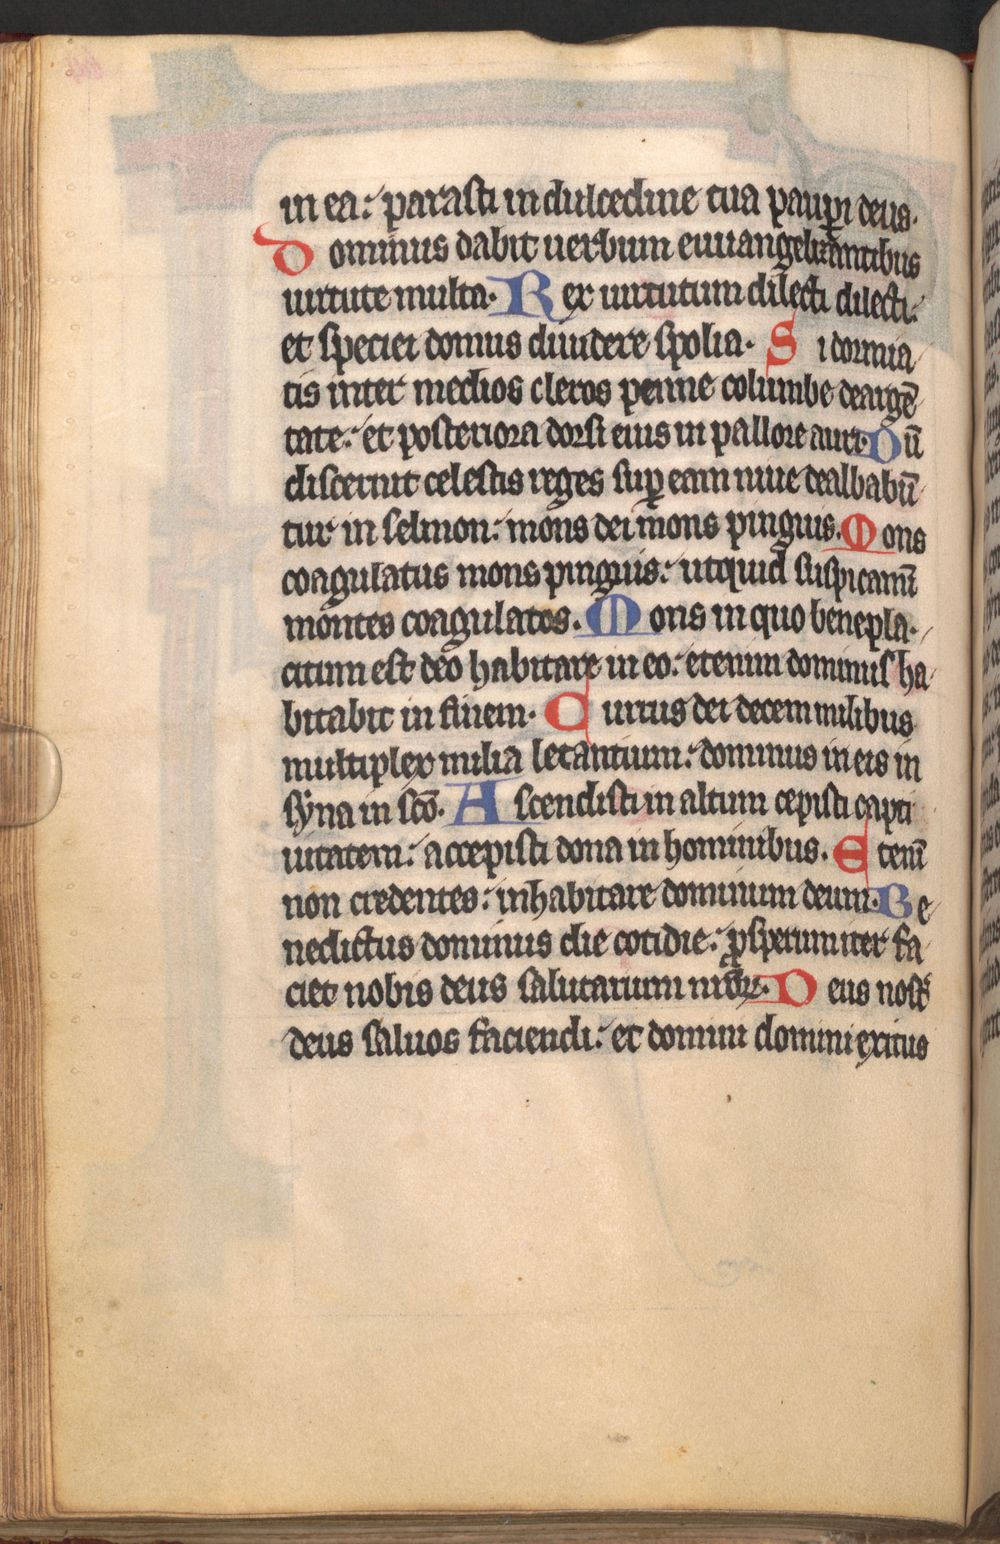 in ea: parasti in dulcedine tua paupi deus.
Dominus dabit uerbum euuangelizantibus
uirtute multa. Rex uirtutum dilecti dilecti:
et speciei domus diuidere spolia. Si dormia
tis inter medios cleros penne columbe deargē
tate: et posteriora dorsi eius in pallore auri. Dū
discernit celestis reges sup eam niue dealbabū
tur in selmon: mons dei mons pinguis. Mons
coagulatus mons pinguis: utquid suspicamī
montes coagulatos. Mons in quo benepla
citum est deo habitare in eo: etenim dominus ha
bitabit in finem. Currus dei decem milibus
multiplex milia letantium: dominus in eis in
syna in scō. Ascendisti in altum cepisti capti
uitatem: accepisti dona in hominibus. Etenī
non credentes: inhabitare dominum deum. Be
nedictus dominus die cotidie: psperum iter fa
ciet nobis deus salutarium nrōꝝ. Deus nost
deus saluos faciendi: et domini domini exitus